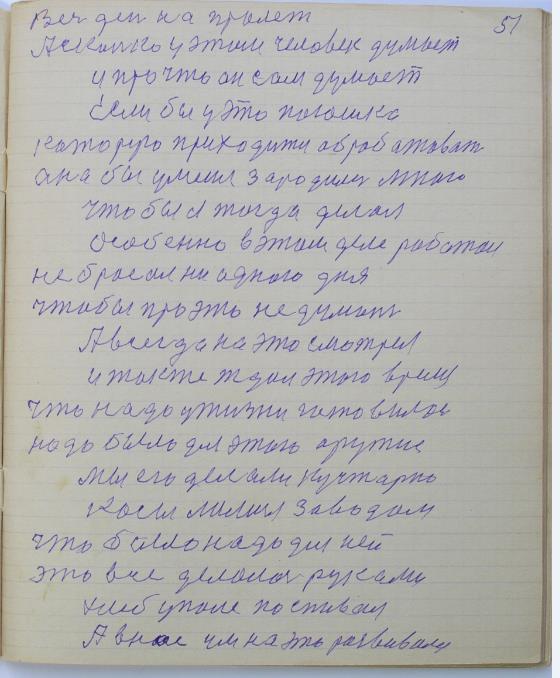 51
Веч ден на пролет
А сколко у этом человек думает
и про что он сам думает
Если бы у это
которую приходити обробатоват
она бы умеш зародилс много
что бы я тогда делал
Особенно в этом деле работал
не бросал ни одного дня
чтобы про это не думат
А всегда на это смотрел
и так те ждал этого
что надо у жизни готовилос
надо было дл этого аружие
мы его делали кучтарно
Косы заводом
что было надо дл ней
это вче делолос руками
хлеб уполе поспивал
А на это розвивалс